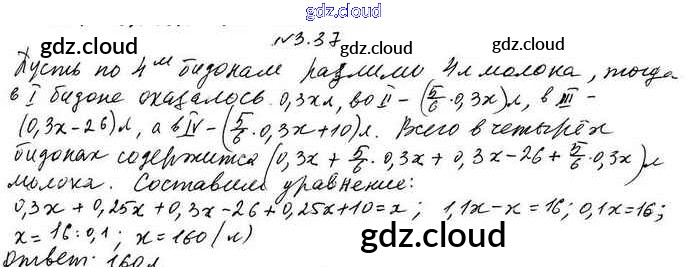 gdz.cloud
№3.37
gdz.cloud gdz.cloud
Пусть по 4м бидонам разлили 4л молока, тогда
в I бидоне оказалось 0,3хл, во II – (5/6 · 0,3х)л, в III –
(0,3х-26)л, а в IV – (5/6 · 0,3х+10)л. Всего в четырёх
бидонах содержится (0,3х + 5/6 · 0,3х + 0,3х-26 + 5/6 · 0,3х)л
молока. Составим уравнение:
0,3х + 0,25х + 0,3х-26 + 0,25х+10 = х; 1,1х-х = 16; 0,1х=16;
х = 16:0,1; х = 160 (л)
gdz.cloud
Ответ: 160л
gdz.cloud